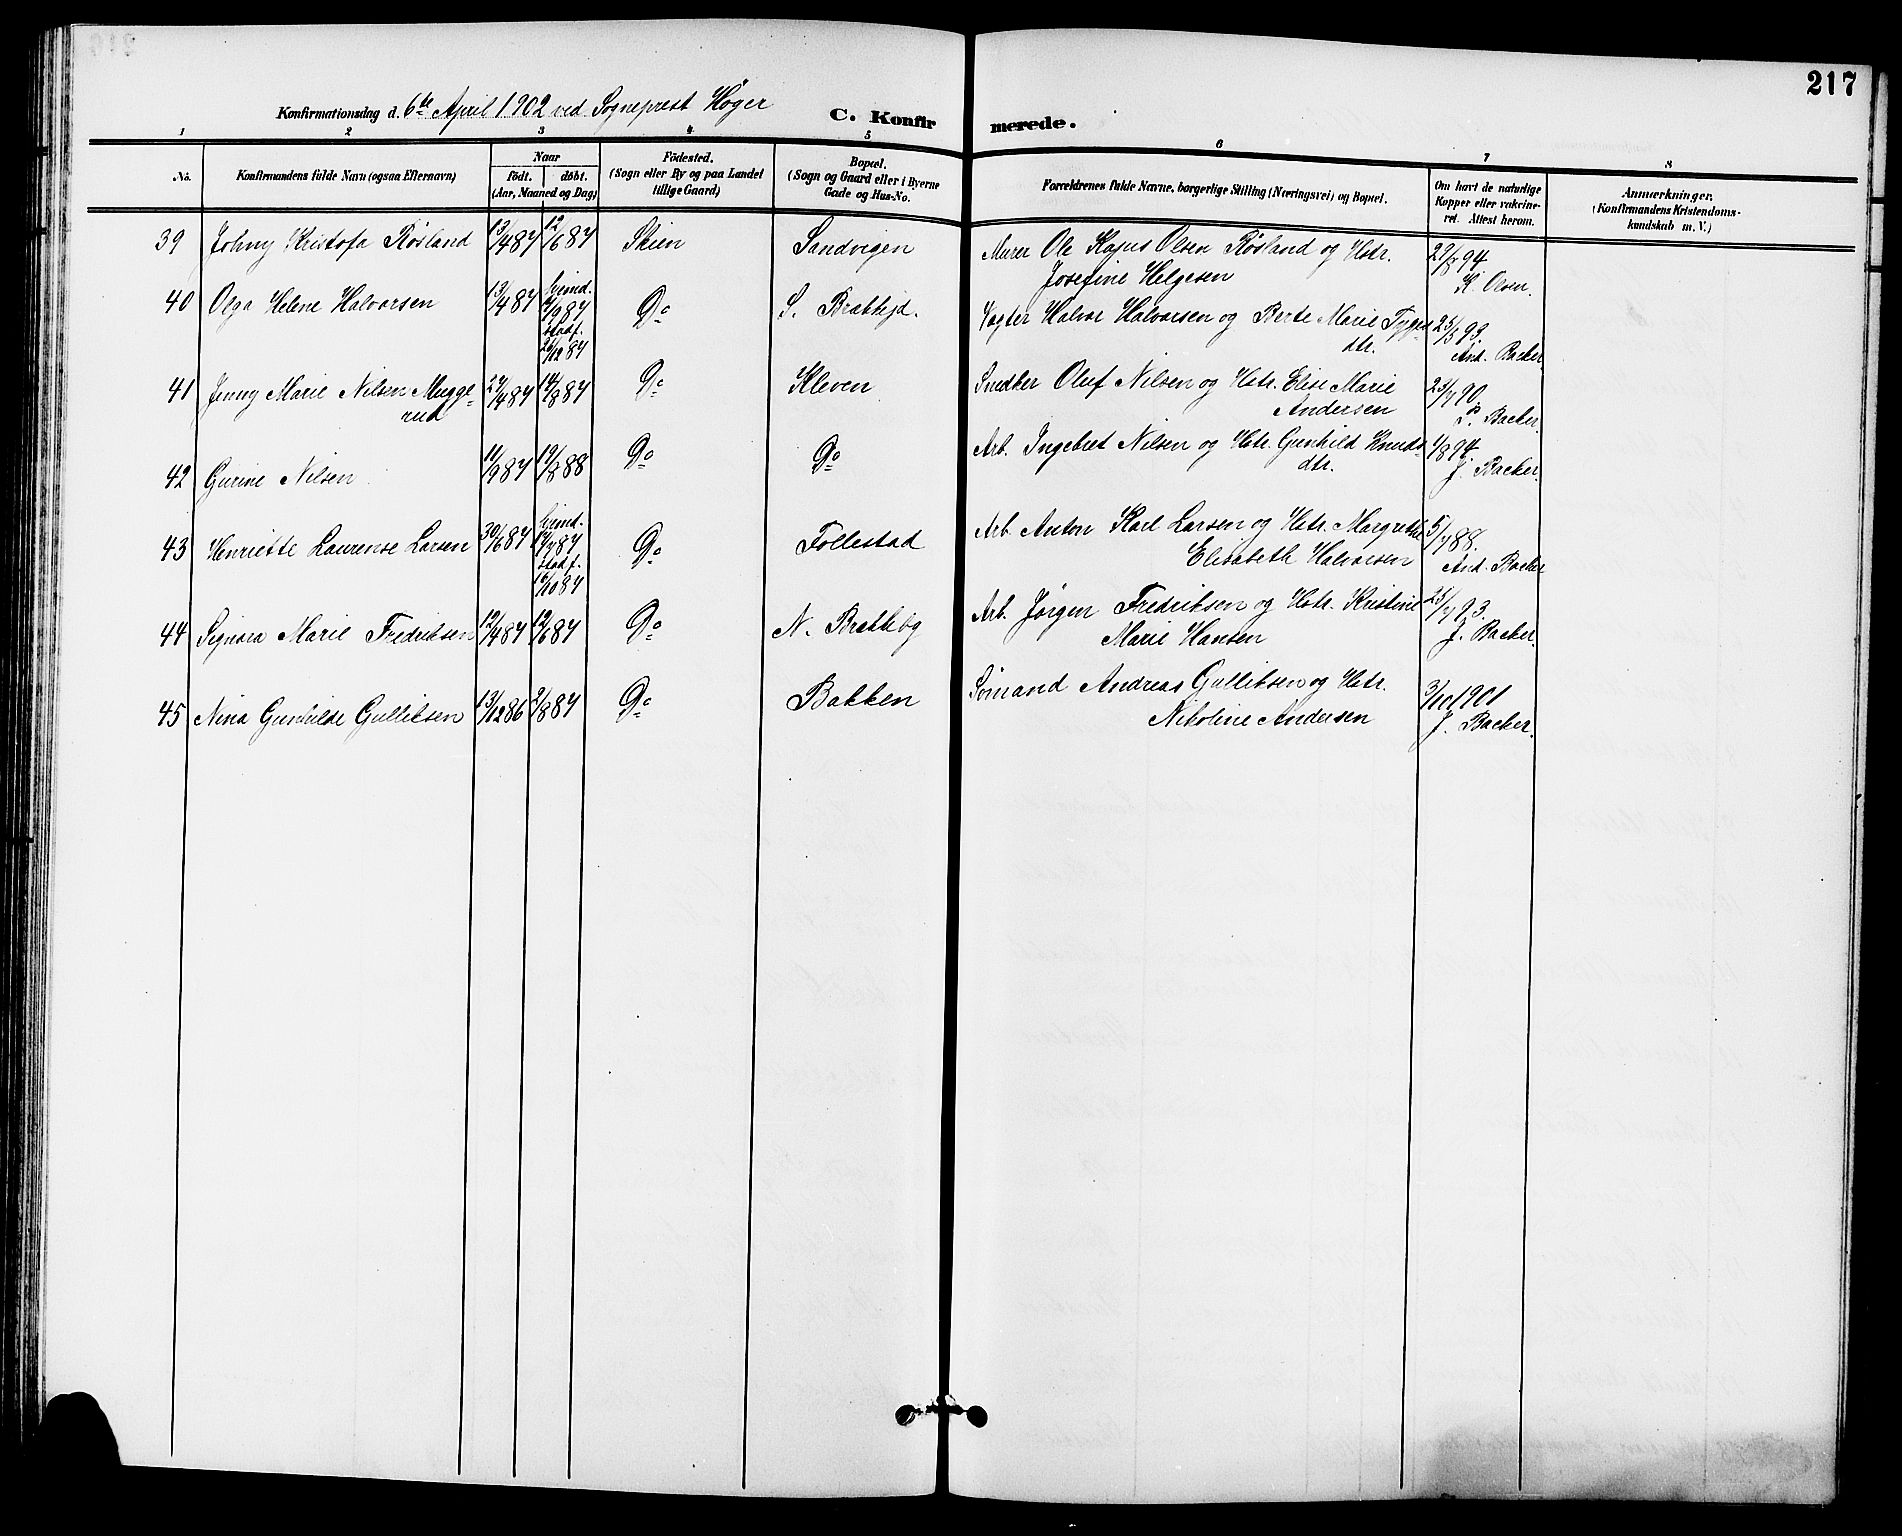 217
Konfirmationsdag d. 6te April 1902 ved Sogneprest Høyer
C. Konfir merede.
1 2 3 4 5 6 7 8
No. Konfirmandens fulde Navn (ogsaa Efternavn) Naar født. døbt. (Aar, Maaned og Dag) Fødested. (Sogn eller By og paa Landet tillige Gaard) Bopæl. (Sogn og Gaard eller i Byerne Gade og Hus-No. Forældrenes fulde Navne, borgerlige Stilling (Næringsvei) og Bopæl. Om havt de naturlige Kopper eller vakcineret. Attest herom. Anmærkninger. (Konfirmandens Kristendomskundskab m. V.)
39 Johny Kristofa Røsland 19/4 87 12/6 87 Skien Sandvigen Murer Ole Kajus Olsen Røsland og Hstr.
Josefine Helgesen K. Olsen.
40 Olga Helene Halvorsen 13/4 87 hjemd. 4/9 87 Do S. Brækkejd. Vagter Halvor Halvorsen og Berte Marie Tyges 25/5 93.
stadf. 26/12 87 dtr. And. Backer
41 Jenny Marie Nilsen Mugge- 29/4 87 14/8 87 Do Kleven Snedker Oluf Nilsen og Hstr. Elise Marie 23/7 90.
rud Andersen Backer.
42 Gurine Nilsen 11/9 87 19/8 88 Do Do Arb. Ingebret Nilsen og Hstr. Gunhild Knuds- 1/8 94.
dtr. J. Backer.
43 Henriette Laurense Larsen 30/6 87 hjemd. 17/7 87 Do Follestad Arb. Anton Karl Larsen og Hstr. Margrethe 5/7 88.
stadf. 16/10 87 Elisabeth Halvorsen And. Backer
44 Signora Marie Fredriksen 12/4 87 12/6 87 Do N. Brækkejg Arb. Jørgen Fredriksen og Hstr. Kristine 25/7 93.
Marie Hansen J. Backer.
45 Nina Gunhilde Gulliksen 13/12 86 21/8 87 Do Bakken Sømand Andreas Gulliksen og Hstr. 3/10 1901
Nikoline Andersen J. Backer.